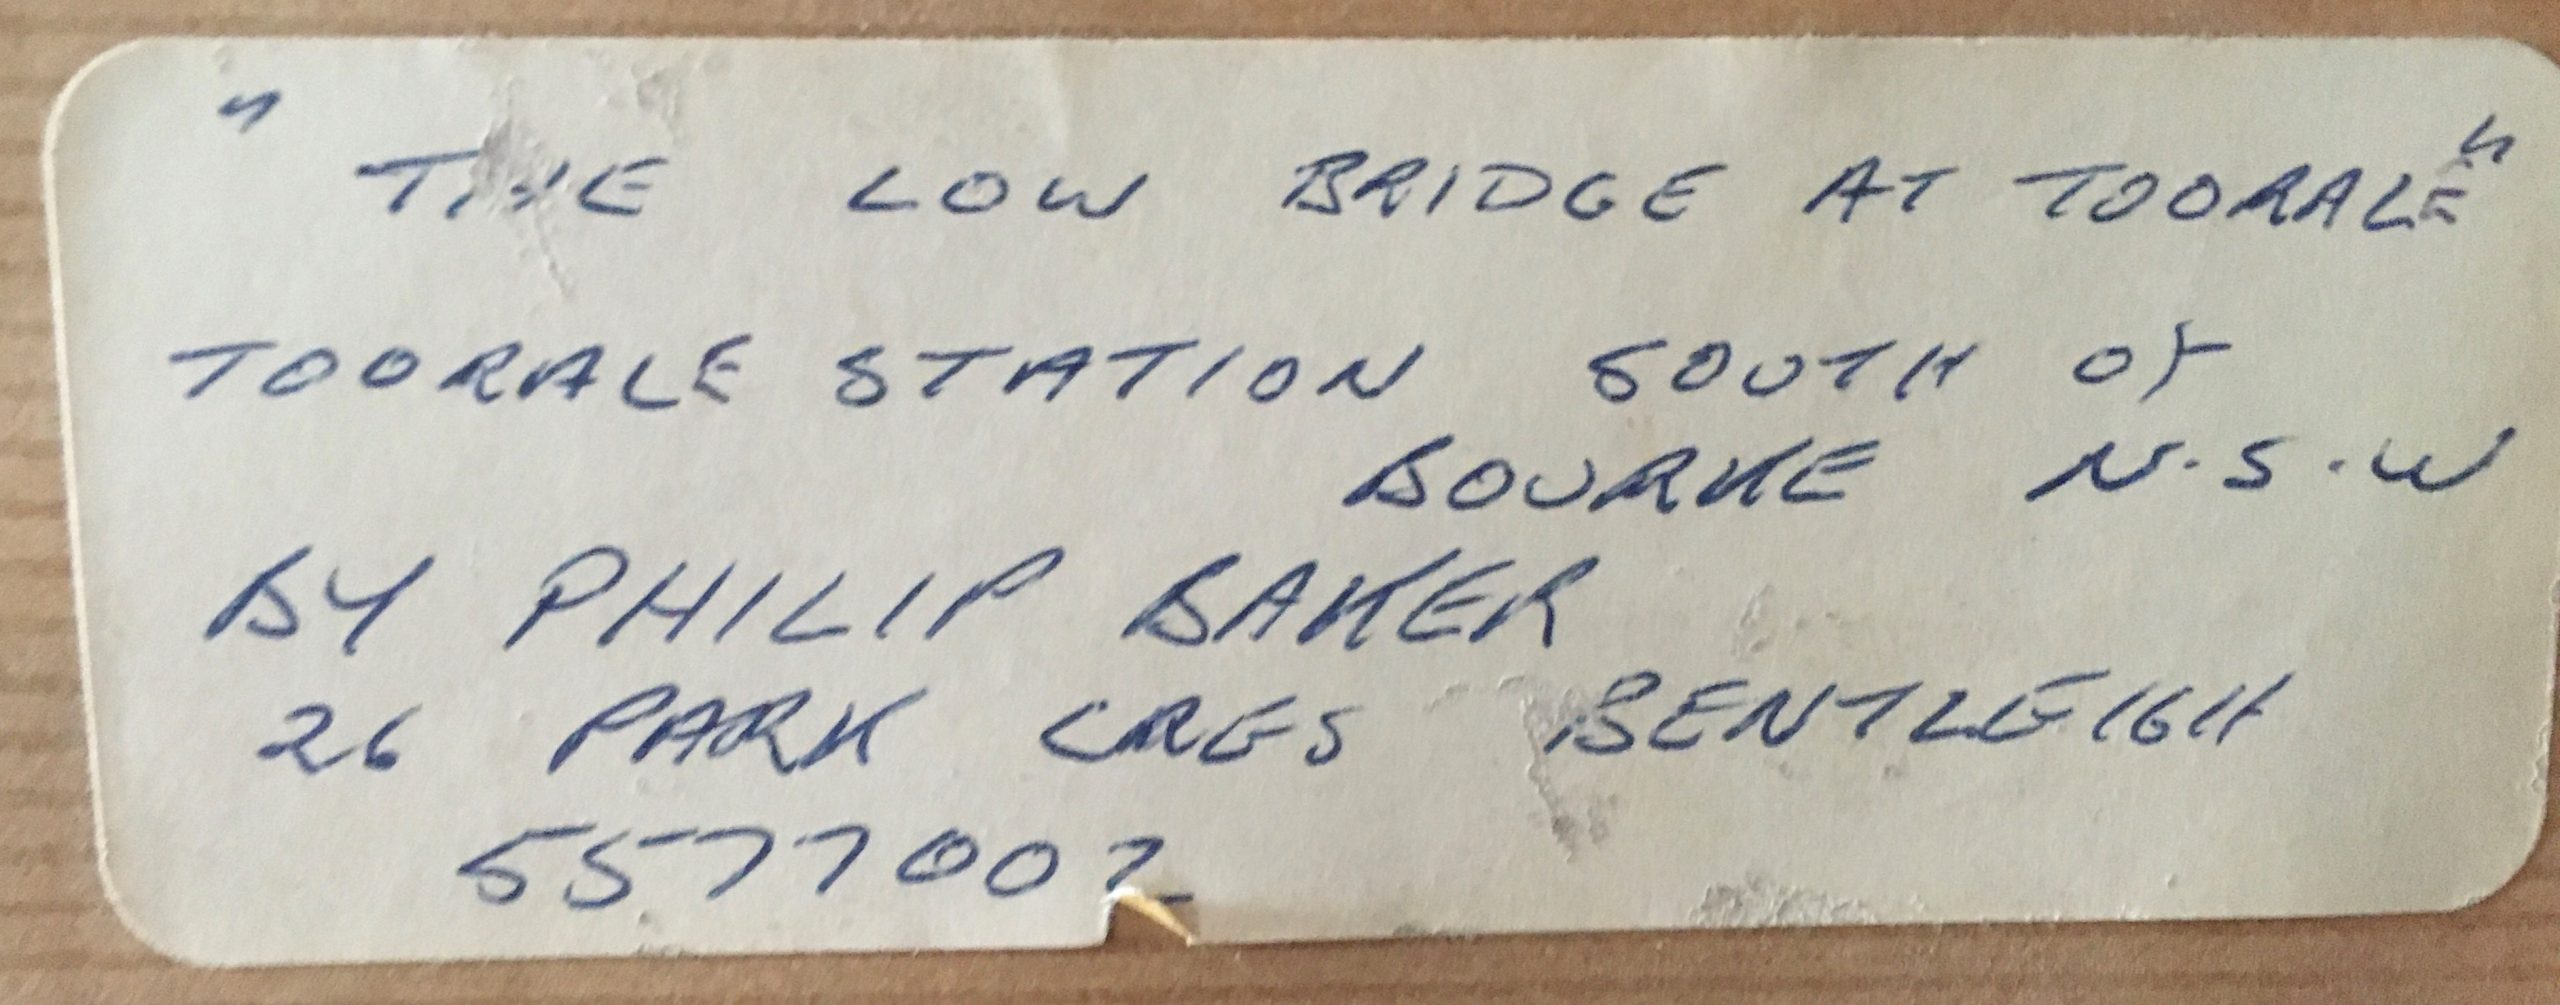 "THE LOW BRIDGE AT TOORALE"
TOORALE STATION SOUTH OF
BOURKE N.S.W
BY PHILIP BAKER
26 PARK CRES BENTLEIGH
5577002